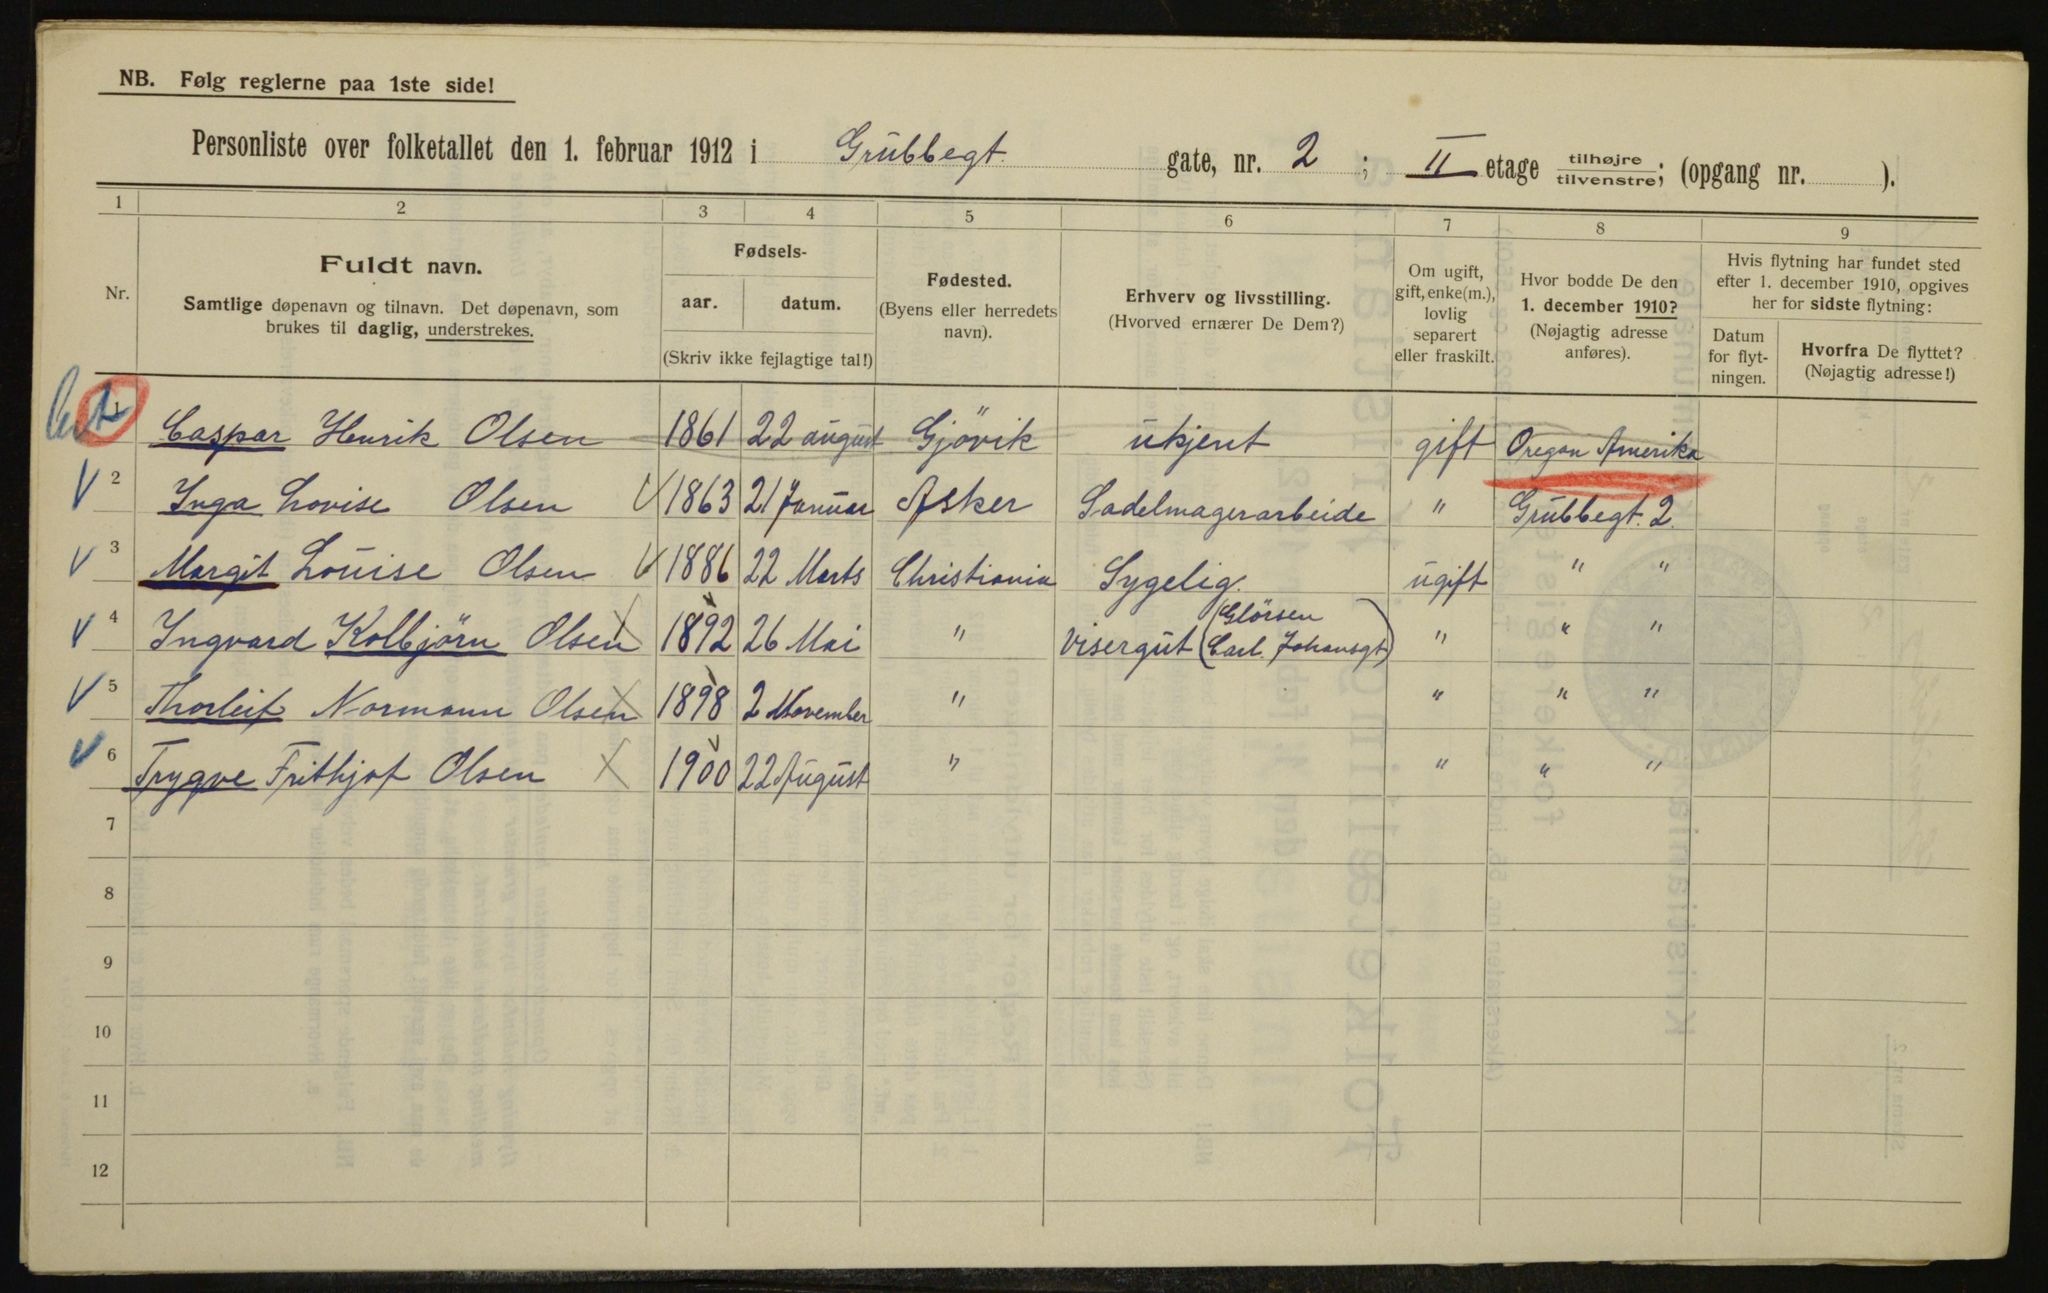 NB. Følg reglerne paa 1ste side!
Personliste over folketallet den 1. februar 1912 i Grubbegt. gate, nr. 2 ; II etage tilhøjre tilvenstre; (opgang nr. ).
1 2 3 4 5 6 7 8 9
Nr.
Fuldt navn.
Samtlige døpenavn og tilnavn. Det døpenavn, som
brukes til daglig, understrekes.
Fødsels-
aar. datum.
(Skriv ikke fejlagtige tal!)
Fødested.
(Byens eller herredets
navn).
Erhverv og livsstilling.
(Hvorved ernærer De Dem?)
Om ugift,
gift, enke(m.),
lovlig
separert
eller fraskilt.
Hvor bodde De den
1. december 1910?
(Nøjagtig adresse
anføres).
Hvis flytning har fundet sted
efter 1. december 1910, opgives
her for sidste flytning:
Datum
for flyt-
ningen.
Hvorfra De flyttet?
(Nøjagtig adresse!)
1 Caspar Henrik Olsen 1861 22 august Gjövik ukjent gift Oregon Amerika
2 Inga Lovise Olsen 1863 21 Januar Asker Sadelmagerarbeide " Grubbegt. 2.
3 Margit Louise Olsen 1886 22 Marts Christiania Sygelig. ugift " "
4 Ingvard Kolbjörn Olsen 1892 26 Mai " Visergut (Glörsen Carl. Johansgt) " " "
5 Thorleif Normann Olsen 1898 2 November " " " "
6 Trygve Frithjof Olsen 1900 22 August " " " "
7
8
9
10
11
12